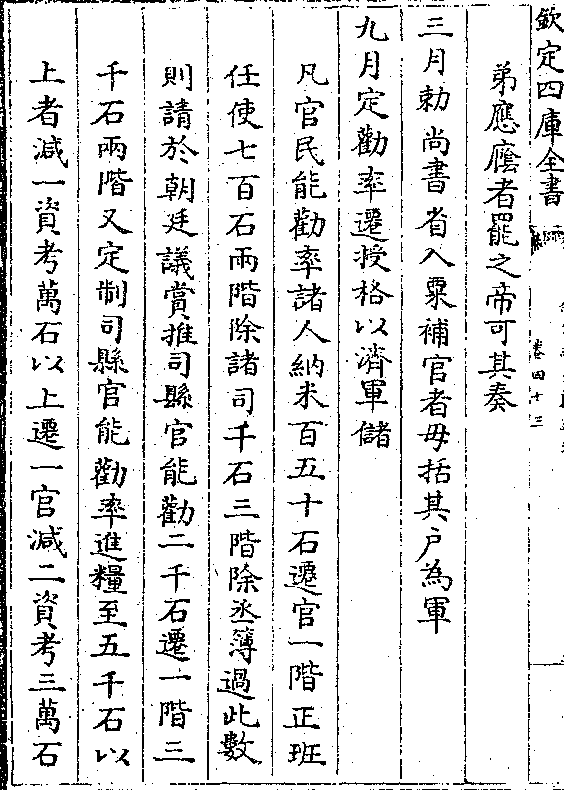 欽定四庫全書
卷四十三
弟應廕者罷之帝可其奏
三月勅尚書省入粟補官者毋括其户為軍
九月定勸率遷授格以濟軍儲
凡官民能勸率諸人納米百五十石遷官一階正班
任使七百石兩階除諸司千石三階除丞簿過此數
則請於朝廷議賞推司縣官能勸二千石遷一階三
千石兩階又定制司縣官能勸率進糧至五千石以
上者減一資考萬石以上遷一官減二資考三萬石